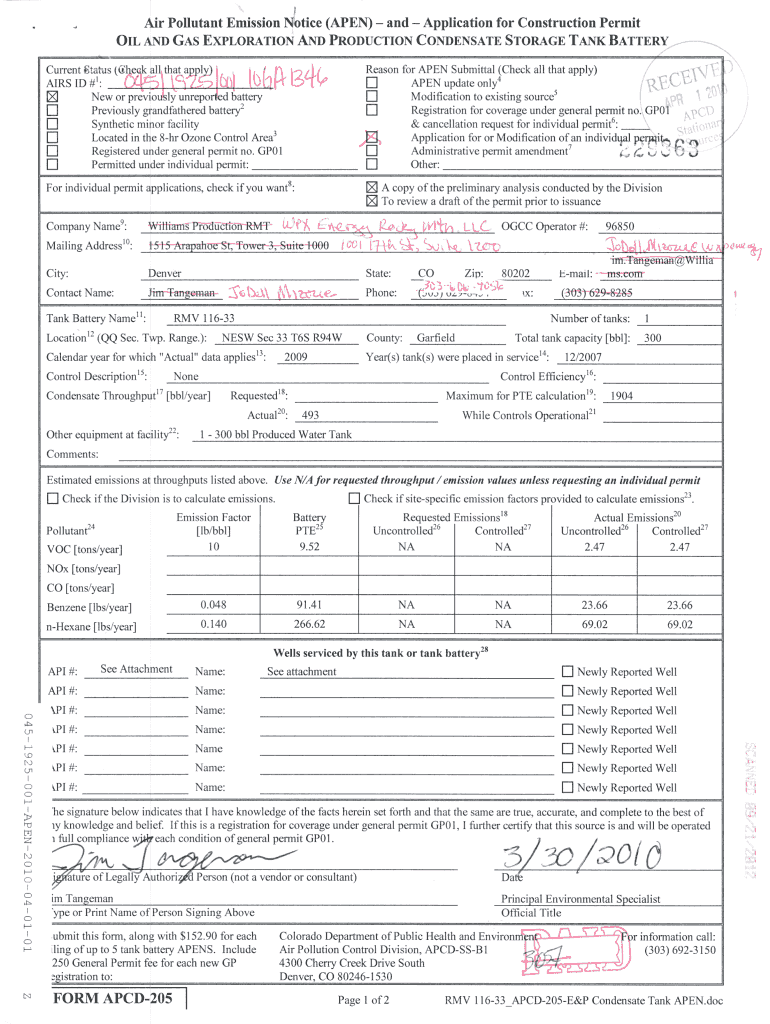 Air Pollutant Emission Notice (APEN) – and – Application for Construction Permit
OIL AND GAS EXPLORATION AND PRODUCTION CONDENSATE STORAGE TANK BATTERY
Current Status (Check all that apply)
AIRS ID #1: 045/1925/001 10GA1346
New or previously unreported battery
Previously grandfathered battery2
Synthetic minor facility
Located in the 8-hr Ozone Control Area3
Registered under general permit no. GP01
Permitted under individual permit:
Reason for APEN Submittal (Check all that apply)
APEN update only4
Modification to existing source5
Registration for coverage under general permit no. GP01
& cancellation request for individual permit6:
Application for or Modification of an individual permit
Administrative permit amendment7
Other:
RECEIVED
APR 1 2010
APCD
Stationary
Sources
229363
For individual permit applications, check if you want8:
A copy of the preliminary analysis conducted by the Division
To review a draft of the permit prior to issuance
Company Name9: Williams Production RMT WPX Energy Rocky Mtn, LLC OGCC Operator #: 96850
Mailing Address10: 1515 Arapahoe St, Tower 3, Suite 1000 1001 17th St, Suite 1200
City: Denver State: CO Zip: 80202 E-mail: im.Tangeman@Willia
ms.com
Contact Name: Jim Tangeman Phone: (303) 629-8285
Tank Battery Name11: RMV 116-33 Number of tanks: 1
Location12 (QQ Sec. Twp. Range.): NESW Sec 33 T6S R94W County: Garfield Total tank capacity [bbl]: 300
Calendar year for which "Actual" data applies13: 2009 Year(s) tank(s) were placed in service14: 12/2007
Control Description15: None Control Efficiency16:
Condensate Throughput17 [bbl/year] Requested18: Maximum for PTE calculation19: 1904
Actual20: 493 While Controls Operational21
Other equipment at facility22: 1 - 300 bbl Produced Water Tank
Comments:
Estimated emissions at throughputs listed above. Use N/A for requested throughput / emission values unless requesting an individual permit
Check if the Division is to calculate emissions. Check if site-specific emission factors provided to calculate emissions23.
Emission Factor Battery Requested Emissions18 Actual Emissions20
Pollutant24 [lb/bbl] PTE25 Uncontrolled26 Controlled27 Uncontrolled26 Controlled27
VOC [tons/year] 10 9.52 NA NA 2.47 2.47
NOx [tons/year]
CO [tons/year]
Benzene [lbs/year] 0.048 91.41 NA NA 23.66 23.66
n-Hexane [lbs/year] 0.140 266.62 NA NA 69.02 69.02
Wells serviced by this tank or tank battery28
API #: See Attachment Name: See attachment Newly Reported Well
API #: Name: Newly Reported Well
API #: Name: Newly Reported Well
API #: Name: Newly Reported Well
API #: Name Newly Reported Well
API #: Name: Newly Reported Well
API #: Name: Newly Reported Well
he signature below indicates that I have knowledge of the facts herein set forth and that the same are true, accurate, and complete to the best of
y knowledge and belief. If this is a registration for coverage under general permit GP01, I further certify that this source is and will be operated
full compliance with each condition of general permit GP01.
Jim Tangeman 3/30/2010
ignature of Legally Authorized Person (not a vendor or consultant) Date
im Tangeman Principal Environmental Specialist
ype or Print Name of Person Signing Above Official Title
ubmit this form, along with $152.90 for each
ling of up to 5 tank battery APENS. Include
250 General Permit fee for each new GP
egistration to:
Colorado Department of Public Health and Environment
Air Pollution Control Division, APCD-SS-B1
4300 Cherry Creek Drive South
Denver, CO 80246-1530
For information call:
(303) 692-3150
FORM APCD-205 Page 1 of 2 RMV 116-33_APCD-205-E&P Condensate Tank APEN.doc
045-1925-001-APEN-2010-04-01-01 Z